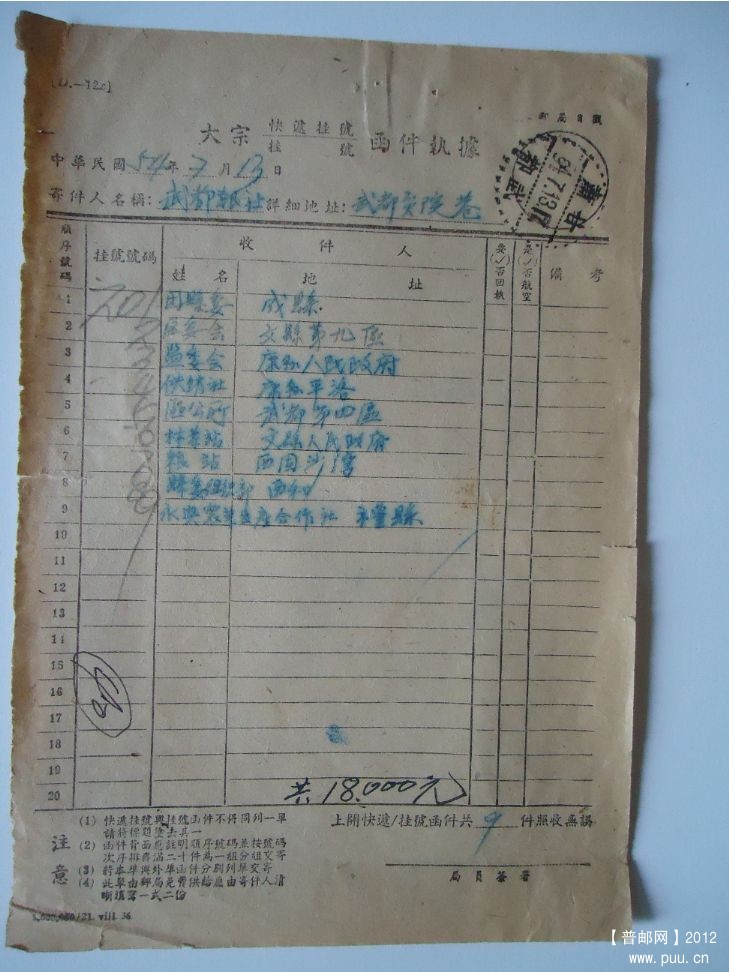 大宗 快遞挂號 函件執據
挂號
郵局日戳
中華民國54年7月13日
寄件人名稱：武都報社 詳細地址：武都貢院巷
順序號碼 挂號號碼 收件人 要(✓)否回執 是(✓)否航空 備考
姓名 地址
1 701 团縣委 成縣
2 2 文縣第九區
3 3 監委会 康縣人民政府
4 4 供销社 康縣平洛
5 5 區公所 武都第四區
6 6 林業站 文縣人民政府
7 7 粮站 西固沙湾
8 8 縣委组织部 西和
9 9 永兴農業生產合作社
10
11
12
13
14
15
16
17
18
19
20 共18.000元
注意
(1) 快遞挂號與挂號函件不得同列一單
請將標題塗去其一
(2) 函件背面應註明順序號碼並按號碼
次序排齊滿二十件為一組分組交寄
(3) 將本埠與外埠函件分別列單交寄
(4) 此單由郵局免費供給應由寄件人清
晰填寫一式二份
上開快遞/挂號函件共9件照收無誤
局員簽署
5,000,000/21. viii. 36
【普邮网】2012
www.puu.cn